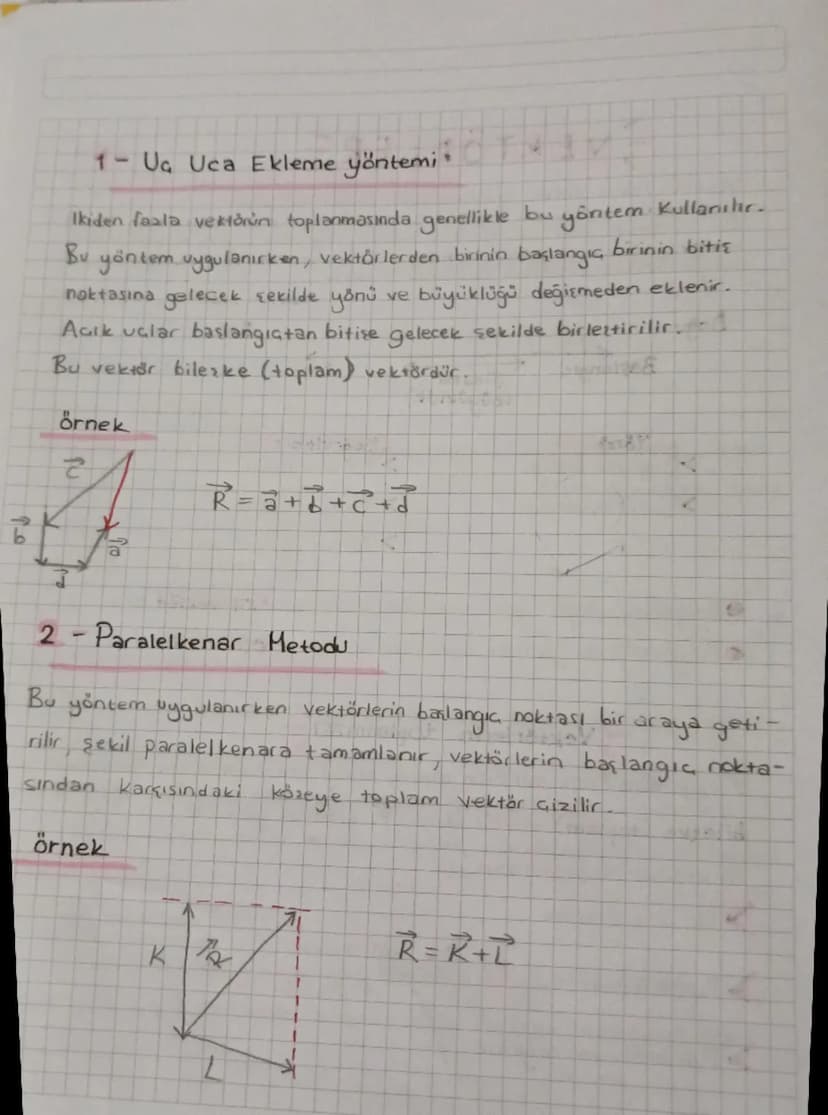 1 - Uç Uca Ekleme yöntemi:
Ikiden fazla vektörün toplanmasında genellikle bu yöntem kullanılır.
Bu yöntem uygulanırken, vektörlerden birinin başlangıç birinin bitiş
noktasına gelecek şekilde yönü ve büyüklüğü değişmeden eklenir.
Açık uçlar başlangıçtan bitişe gelecek şekilde birleştirilir.
Bu vektör bileşke (toplam) vektördür.
örnek
c⃗
R⃗ = a⃗ + b⃗ + c⃗ + d⃗
b⃗
a⃗
d⃗
2 - Paralelkenar Metodu
Bu yöntem uygulanırken vektörlerin başlangıç noktası bir araya geti-
rilir, şekil paralelkenara tamamlanır, vektörlerin başlangıç nokta-
sından karşısındaki köşeye toplam vektör çizilir.
örnek
K R⃗
R⃗ = K⃗ + L⃗
L